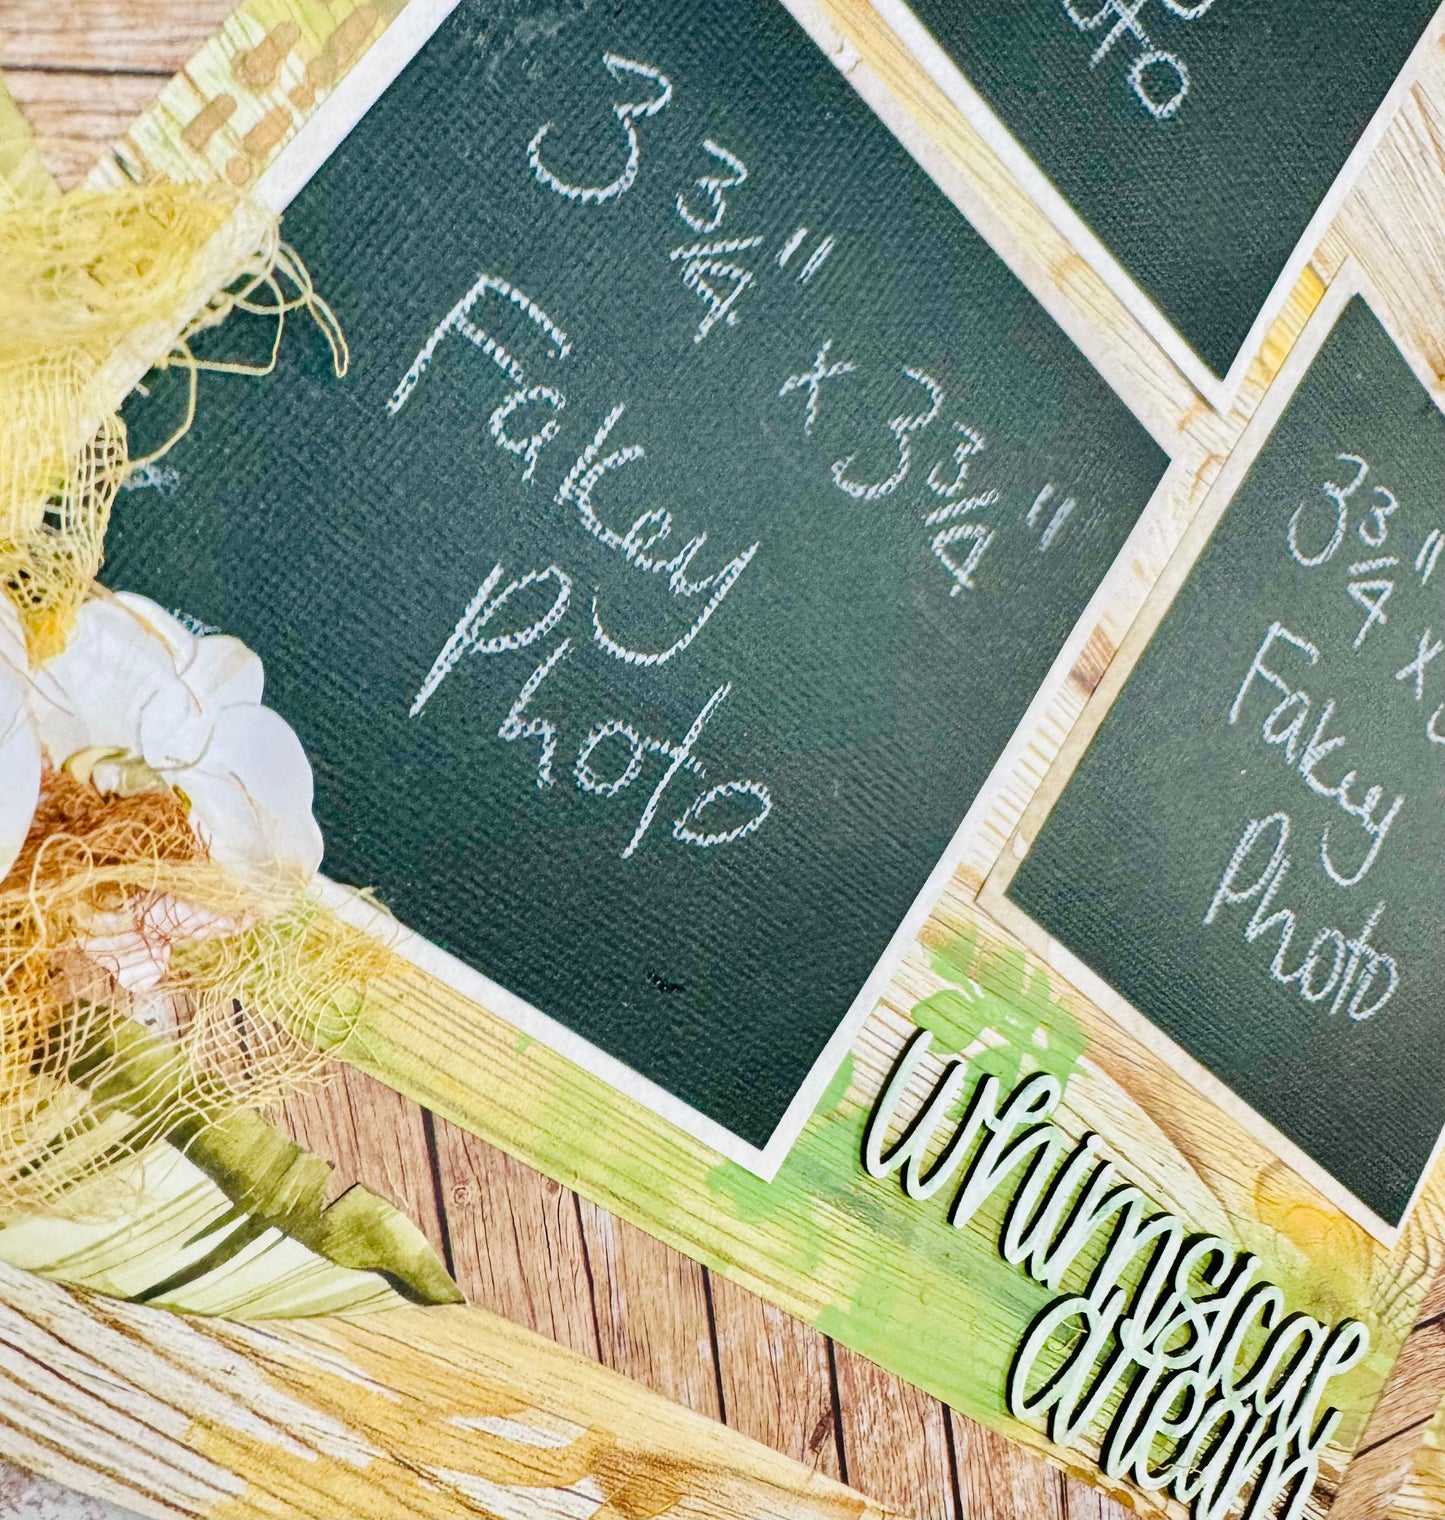 3 3/4" x 3 3/4"
Fakey
Photo
oto
3 3/4" x
Fakey
Photo
whimsical
dream